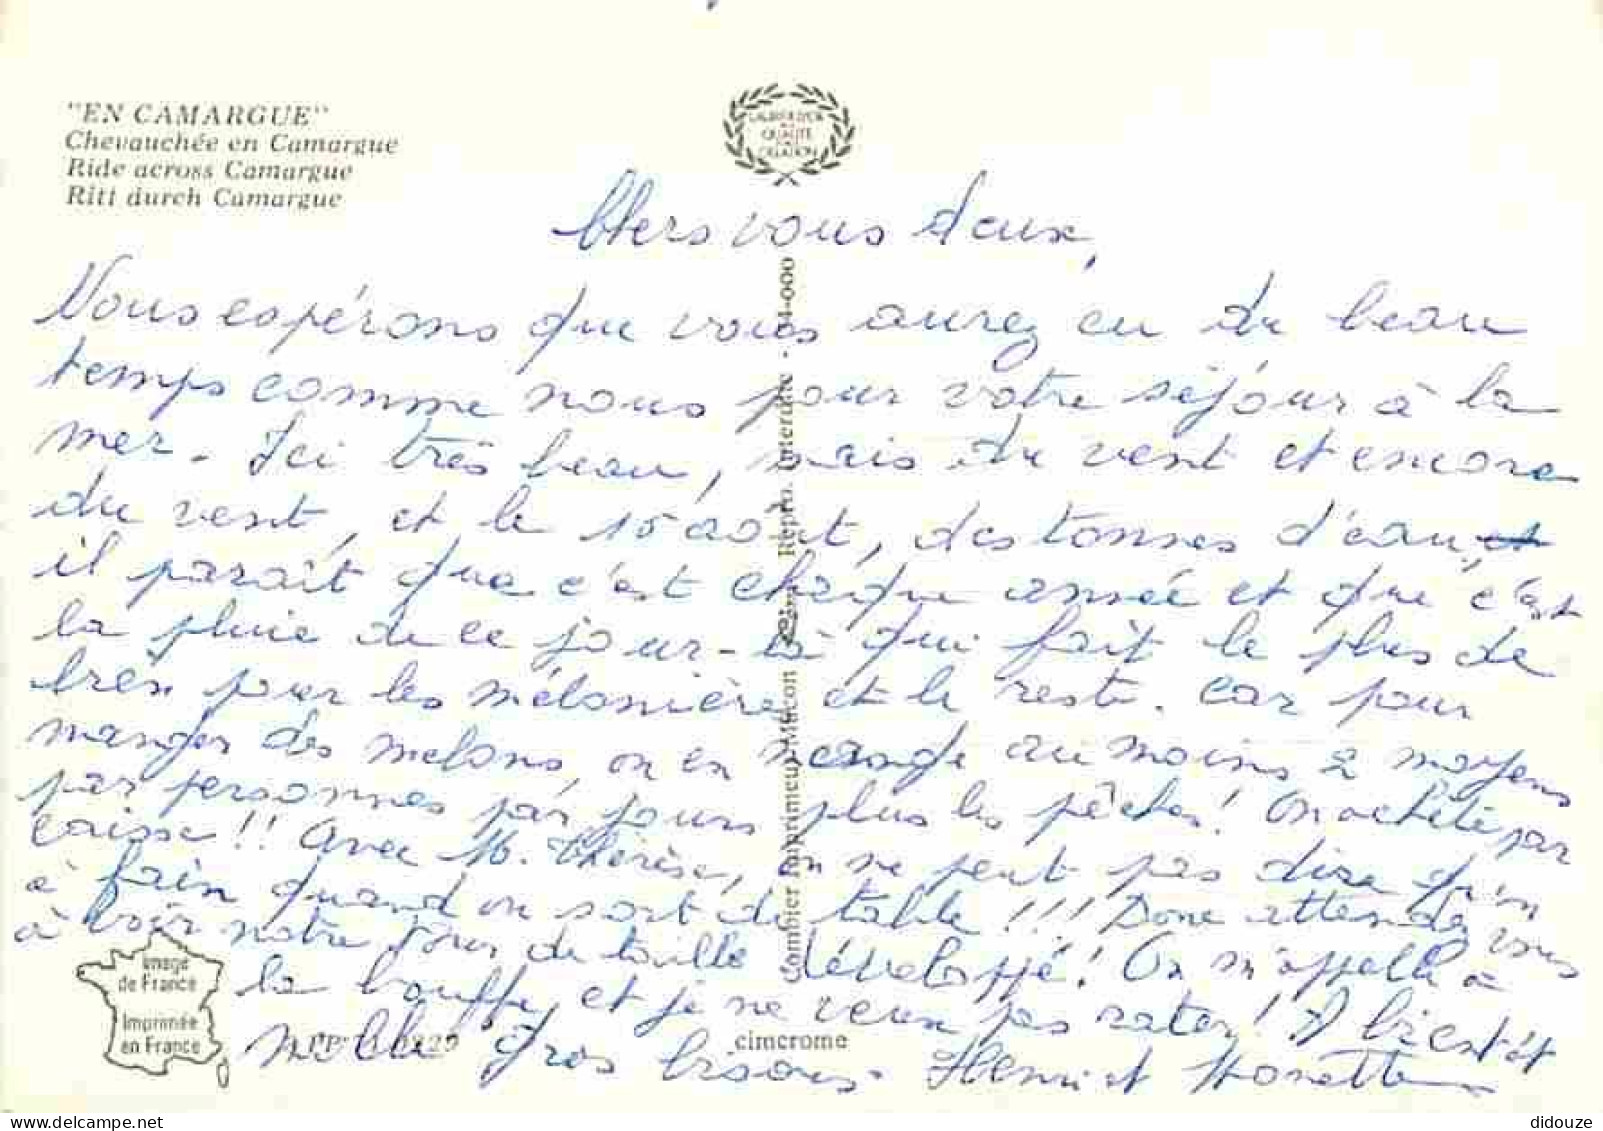 "EN CAMARGUE"
Chevauchée en Camargue
Ride across Camargue
Ritt durch Camargue
QUALITE
CREATION
Chers vous deux,
Nous espérons que vous aurez eu du beau
temps comme nous pour votre séjour à la
mer. Ici très beau, mais du vent et encore
du vent, et le 15 août, des tonnes d'eau, et
il paraît que c'est chaque année et que c'est
la pluie de ce jour-là qui fait le plus de
bien pour les mélonière et le reste. Car pour
manger des melons, on en mange au moins 2 moyens
par personnes par jours plus les pêches! On achète par
caisse!! Avec M. Thérèse, on ne peut pas dire qu'on
a faim quand on sort de table!!! Donc attendez vous
à voir notre tour de taille développé! On m'appelle à
la bouffe, et je ne veux pas rater! A bientôt
Gros bisous. Henri et Ginette
Combier Imprimeur Mâcon
Repro. Interdite - 71-000
Image
de France
Imprimée
en France
cimcrome
didouze